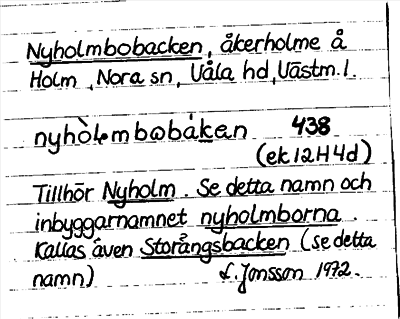 Nyholmbobacken, åkerholme å
Holm, Nora sn, Våla hd, Västm. l.
nyhòlmbobákan 438
(ek 12H4d)
Tillhör Nyholm. Se detta namn och
inbyggarnamnet nyholmborna.
Kallas även Storångsbacken (se detta
namn) L. Jonsson 1972.